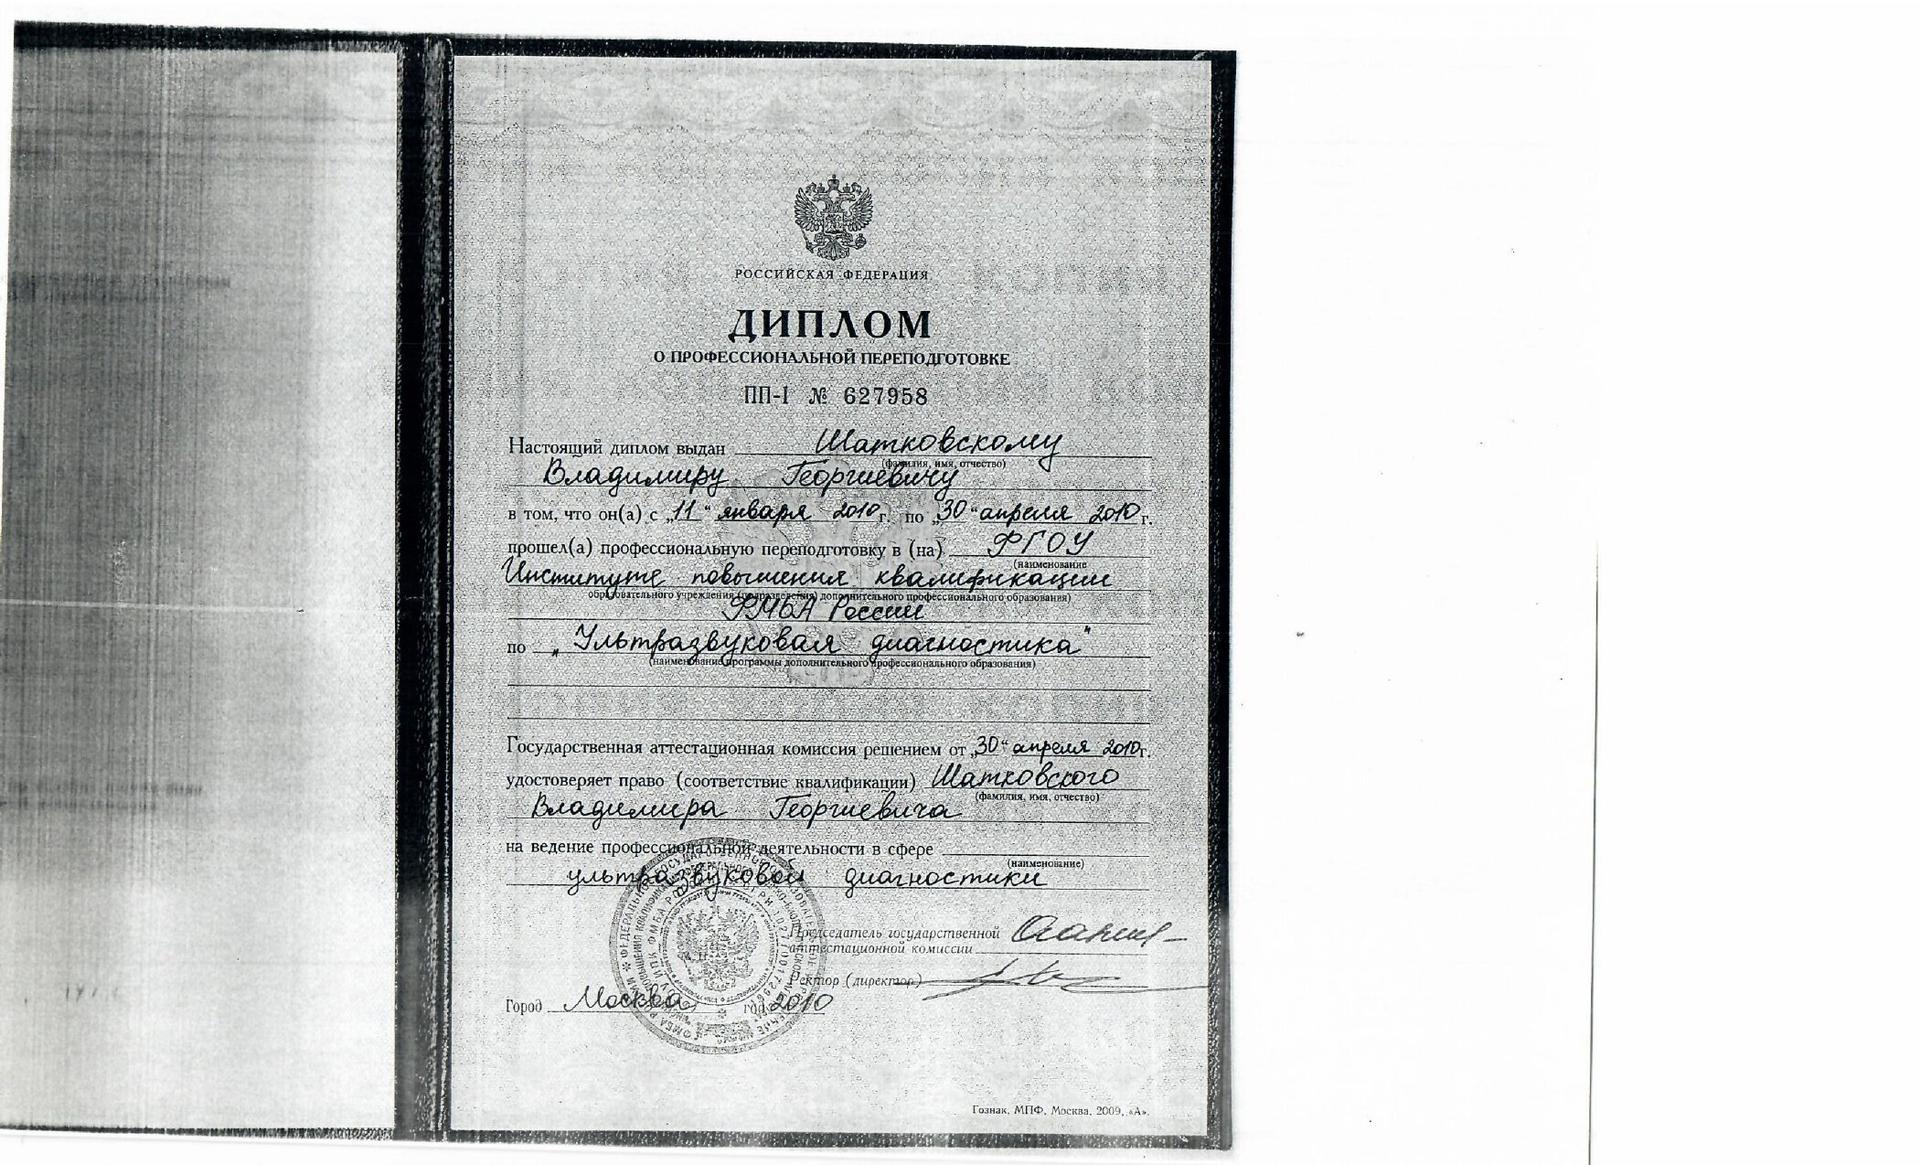 РОССИЙСКАЯ ФЕДЕРАЦИЯ
ДИПЛОМ
О ПРОФЕССИОНАЛЬНОЙ ПЕРЕПОДГОТОВКЕ
ПП-I № 627958
Настоящий диплом выдан Шатковскому
(фамилия, имя, отчество)
Владимиру Георгиевичу
в том, что он(а) с „11“ января 2010 г. по „30“ апреля 2010 г.
прошел(а) профессиональную переподготовку в (на) ФГОУ
(наименование
Институте повышения квалификации
образовательного учреждения (подразделения) дополнительного профессионального образования)
ФМБА России
по „Ультразвуковая диагностика“
(наименование программы дополнительного профессионального образования)
Государственная аттестационная комиссия решением от „30“ апреля 2010 г.
удостоверяет право (соответствие квалификации) Шатковского
(фамилия, имя, отчество)
Владимира Георгиевича
на ведение профессиональной деятельности в сфере
(наименование)
ультразвуковой диагностики
Председатель государственной
аттестационной комиссии
Ректор (директор)
Город Москва год 2010
Гознак, МПФ, Москва, 2009, «А».